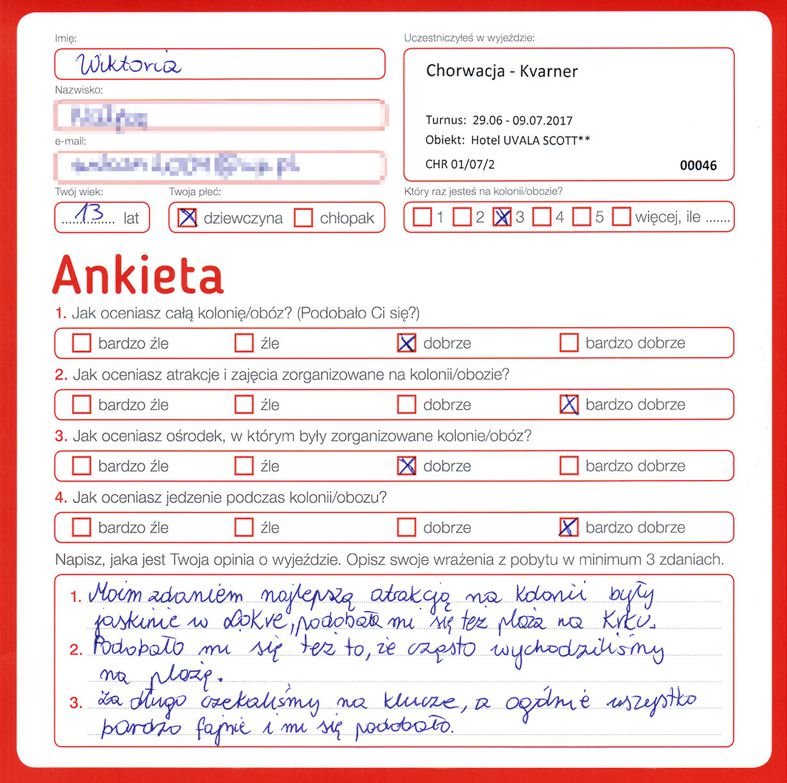 Imię:
Wiktoria
Nazwisko:
e-mail:
Twój wiek:
13 lat
Twoja płeć:
dziewczyna chłopak
Uczestniczyłeś w wyjeździe:
Chorwacja - Kvarner
Turnus: 29.06 - 09.07.2017
Obiekt: Hotel UVALA SCOTT**
CHR 01/07/2 00046
Który raz jesteś na kolonii/obozie?
1 2 3 4 5 więcej, ile .......
Ankieta
1. Jak oceniasz całą kolonię/obóz? (Podobało Ci się?)
bardzo źle źle dobrze bardzo dobrze
2. Jak oceniasz atrakcje i zajęcia zorganizowane na kolonii/obozie?
bardzo źle źle dobrze bardzo dobrze
3. Jak oceniasz ośrodek, w którym były zorganizowane kolonie/obóz?
bardzo źle źle dobrze bardzo dobrze
4. Jak oceniasz jedzenie podczas kolonii/obozu?
bardzo źle źle dobrze bardzo dobrze
Napisz, jaka jest Twoja opinia o wyjeździe. Opisz swoje wrażenia z pobytu w minimum 3 zdaniach.
1. Moim zdaniem najlepszą atrakcją na kolonii były
jaskinie w Lokve, podobała mi się też plaża na Krku.
2. Podobało mi się też to, że często wychodziliśmy
na plażę.
3. Za długo czekaliśmy na klucze, a ogólnie wszystko
bardzo fajnie i mi się podobało.